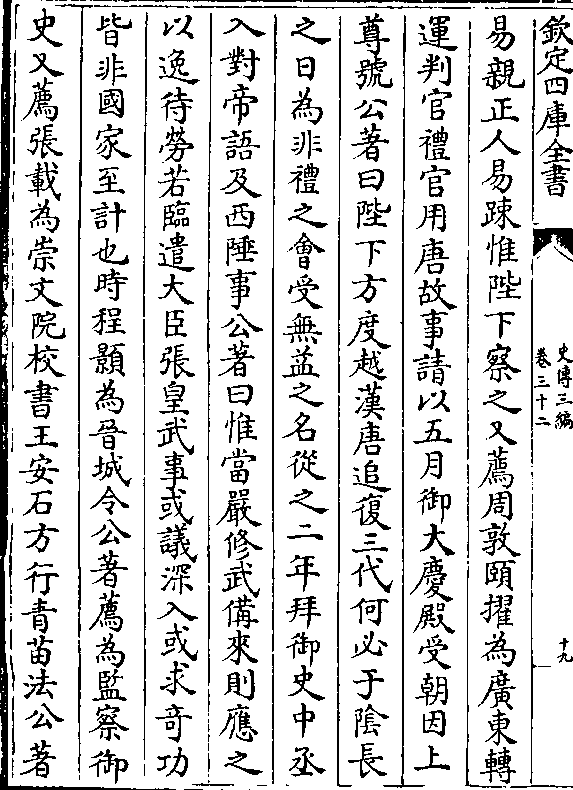 欽定四庫全書
史傳三編
卷三十二
十九
易親正人易踈惟陛下察之又薦周敦頤擢為廣東轉
運判官禮官用唐故事請以五月御大慶殿受朝因上
尊號公著曰陛下方度越漢唐追復三代何必于隂長
之日為非禮之會受無益之名從之二年拜御史中丞
入對帝語及西陲事公著曰惟當嚴修武備來則應之
以逸待勞若臨遣大臣張皇武事或議深入或求竒功
皆非國家至計也時程顥為晉城令公著薦為監察御
史又薦張載為崇文院校書王安石方行青苗法公著